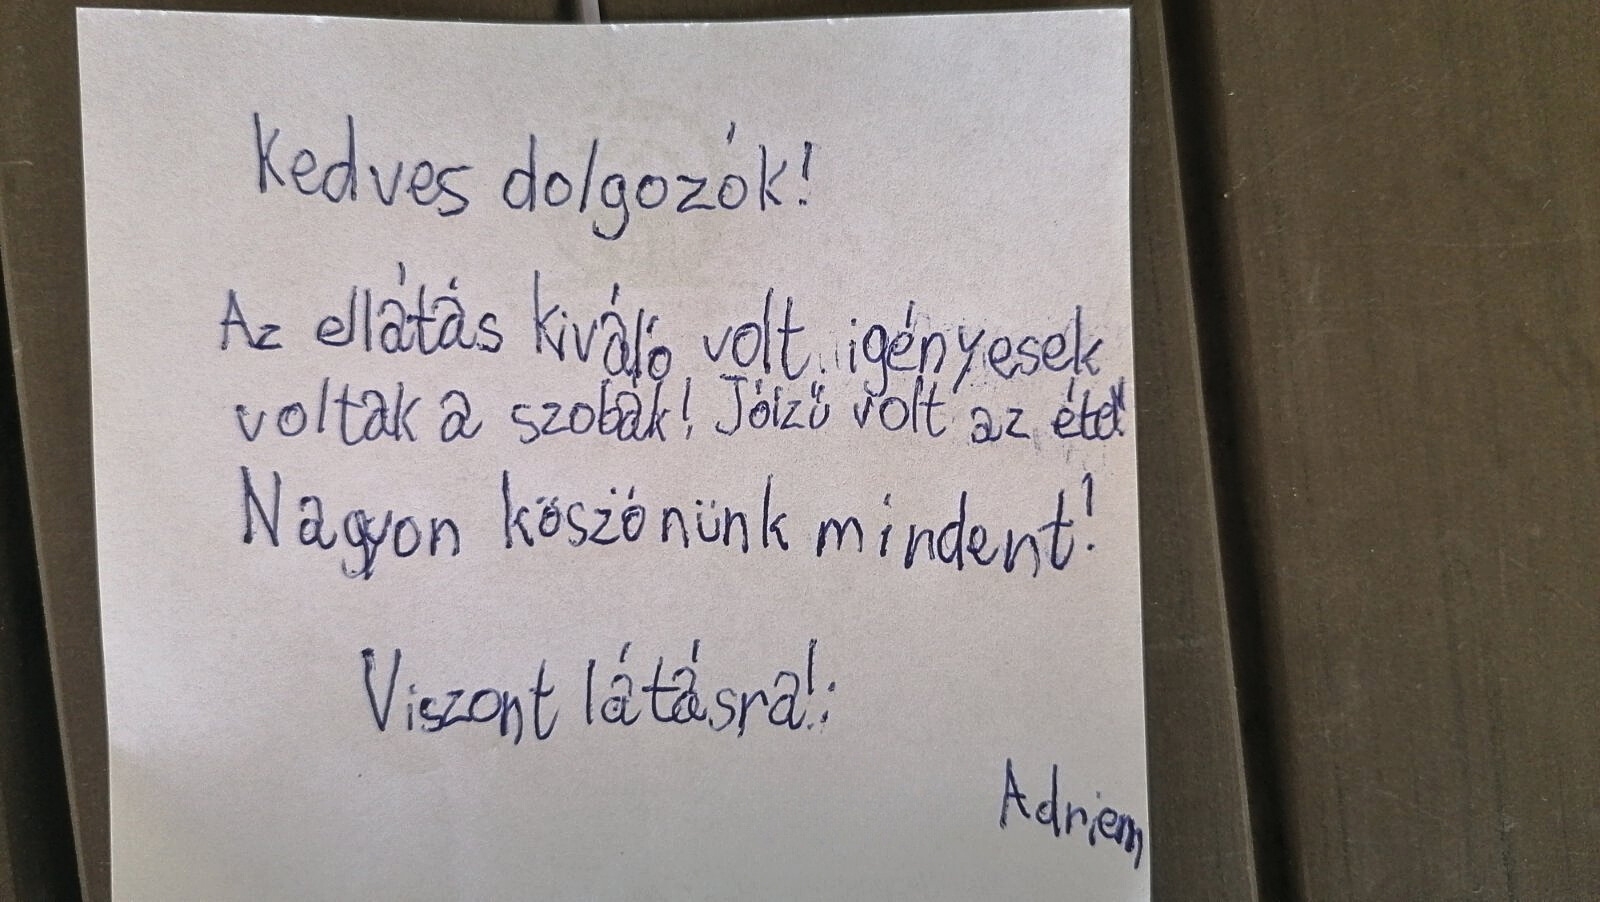 Kedves dolgozók!
Az ellátás kiváló volt, igényesek
voltak a szobák! Jóízű volt az étel!
Nagyon köszönünk mindent!
Viszont látásra!:
Adrienn